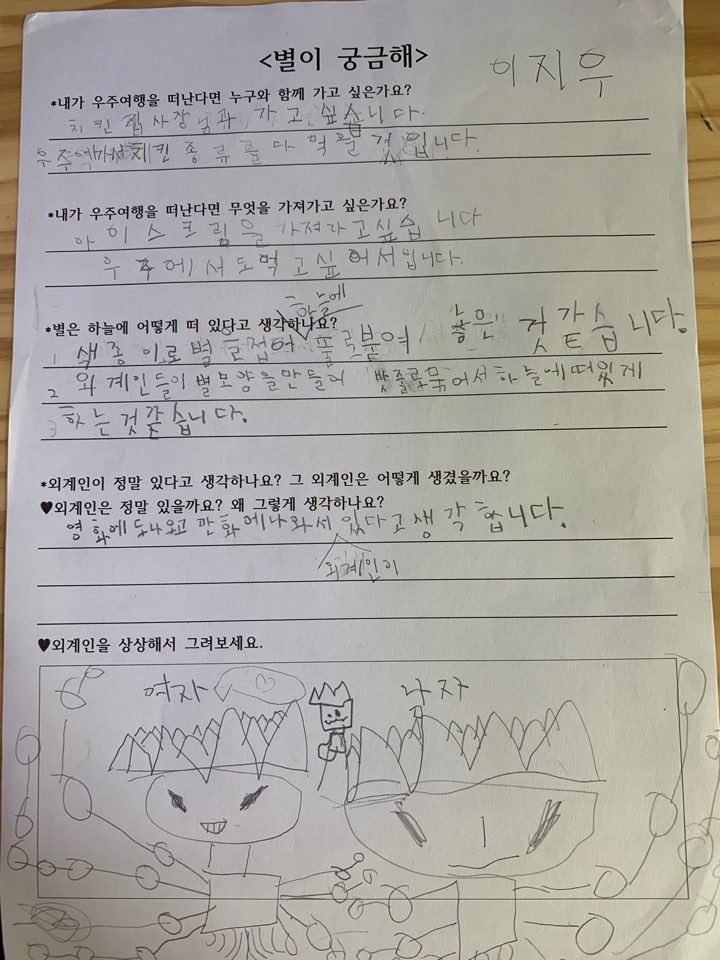 <별이 궁금해>
이지우
*내가 우주여행을 떠난다면 누구와 함께 가고 싶은가요?
치킨집사장님과 가고 싶습니다.
우주에가서 치킨 종류를 다 먹을 것 입니다.
*내가 우주여행을 떠난다면 무엇을 가져가고 싶은가요?
아이스크림을 가져가고싶습니다
우주에서도먹고싶어서입니다.
*별은 하늘에 어떻게 떠 있다고 생각하나요?
하늘에
1 색종이로별로접어 풀로붙여 놓은 것같습니다.
2 외계인들이 별모양을만들어 밧줄로묶어서하늘에떠있게
3 하는것같습니다.
*외계인이 정말 있다고 생각하나요? 그 외계인은 어떻게 생겼을까요?
♥외계인은 정말 있을까요? 왜 그렇게 생각하나요?
영화에도나오고 만화에나와서 있다고생각합니다.
외계인이
♥외계인을 상상해서 그려보세요.
여자
남자